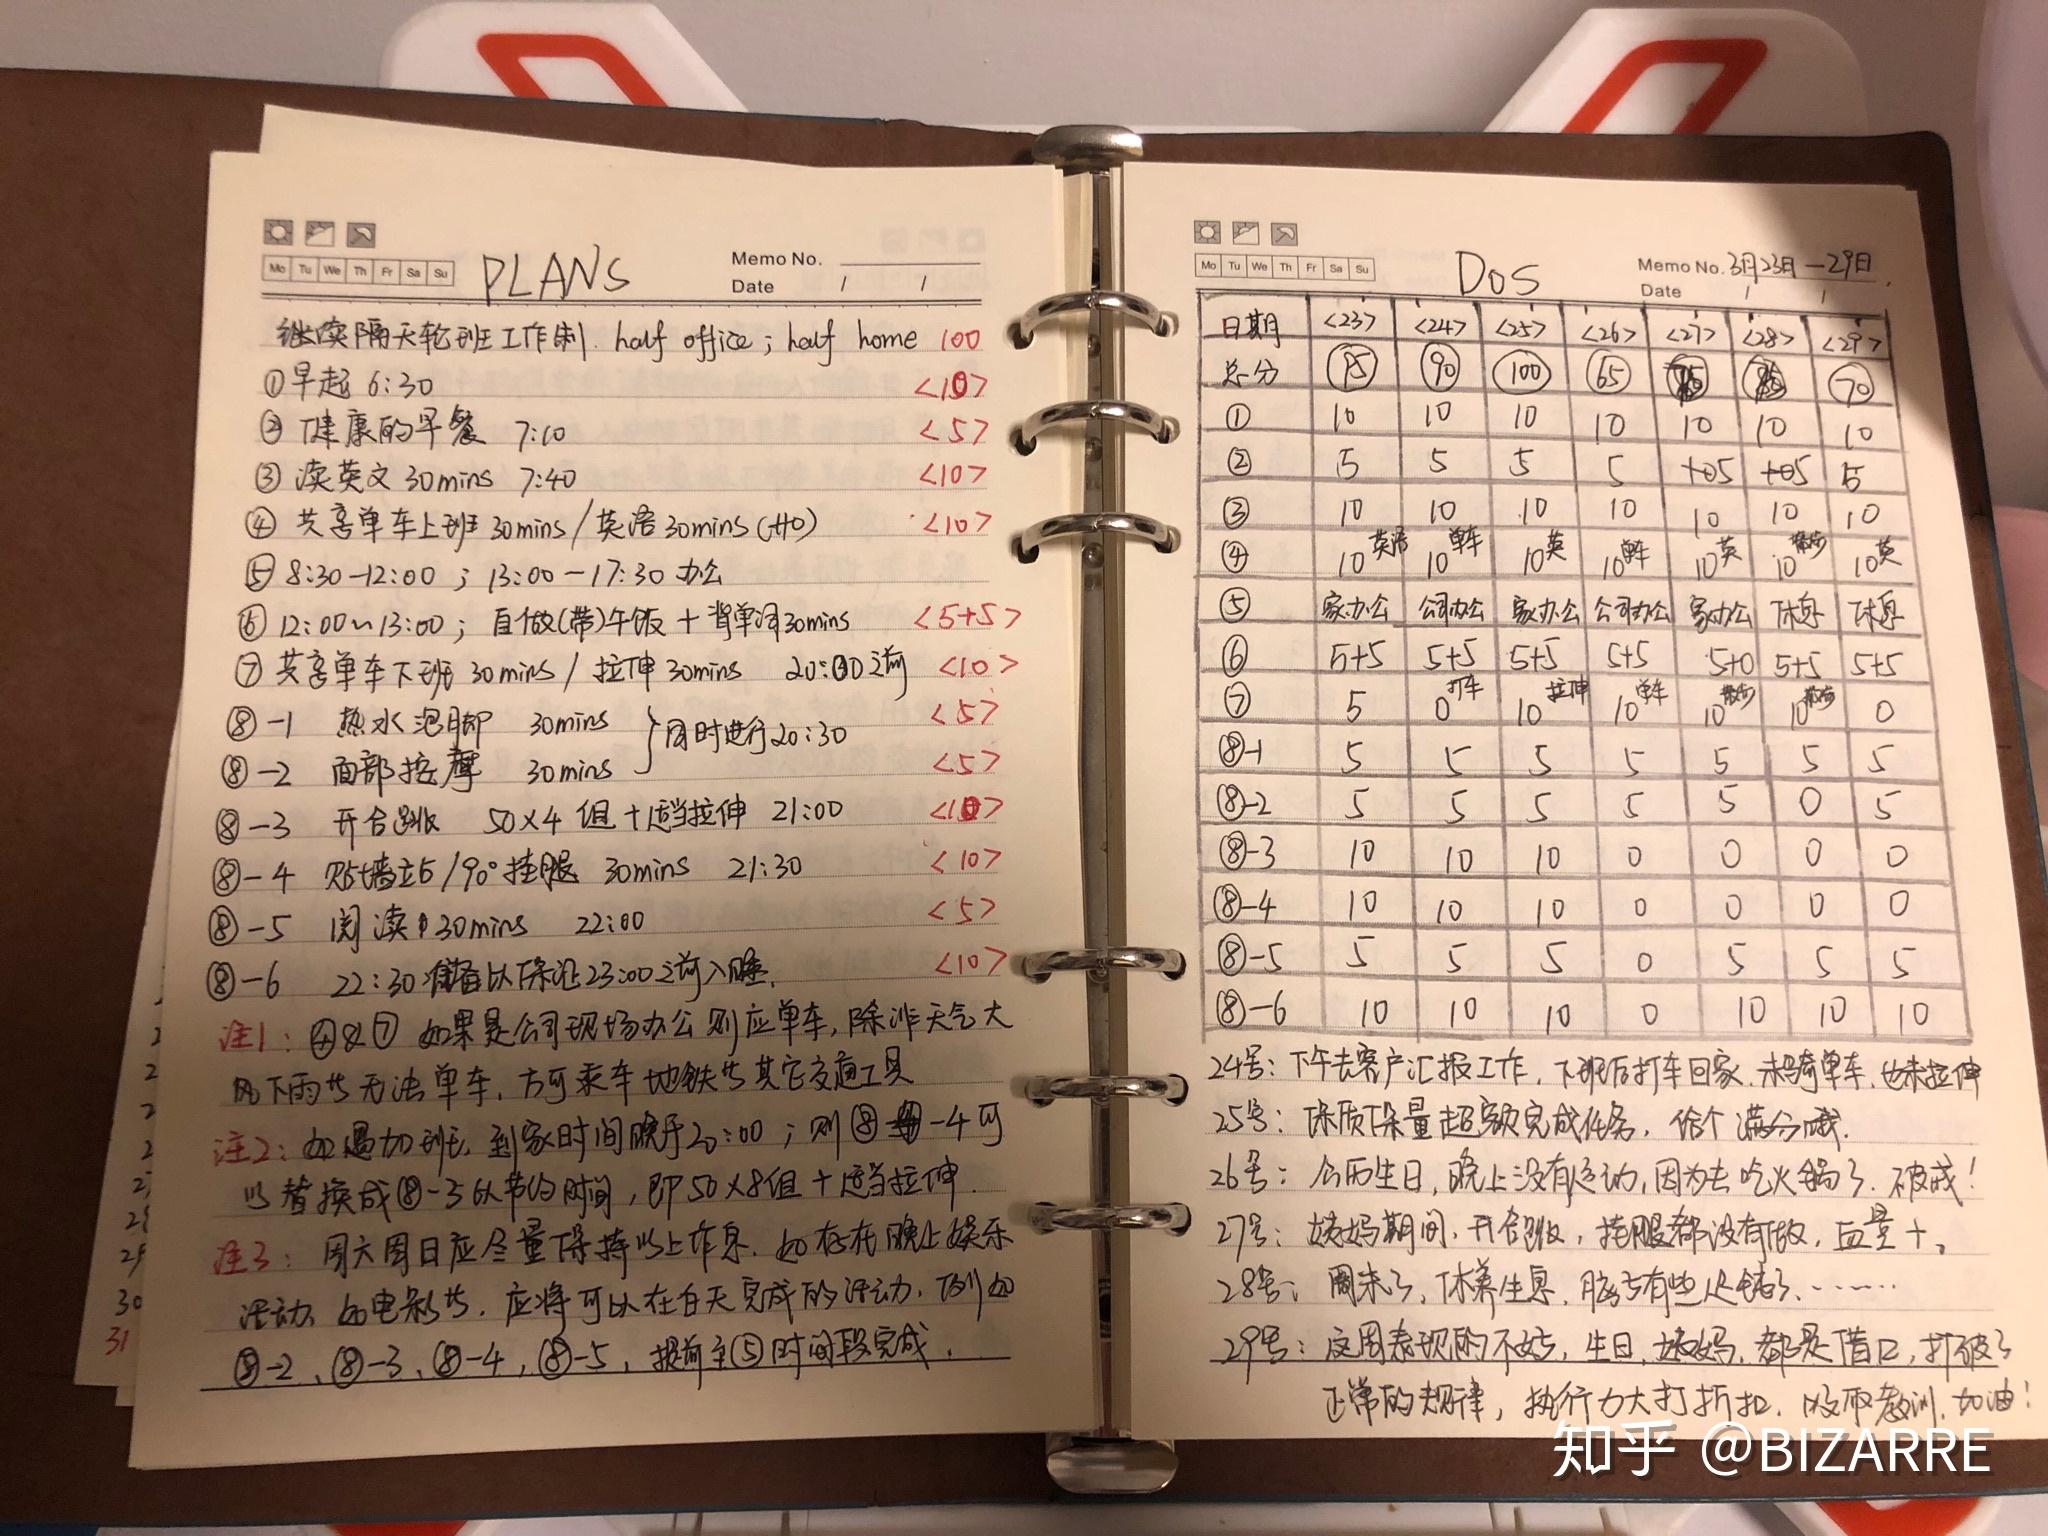 Mo Tu We Th Fr Sa Su
PLANS
Memo No.
Date / /
继续隔天轮班工作制. half office ; half home 100
①早起 6:30 <10>
② 健康的早餐 7:10 <5>
③ 读英文 30mins 7:40 <10>
④ 共享单车上班 30mins / 英语 30mins (HO) <10>
⑤ 8:30-12:00 ; 13:00-17:30 办公
⑥ 12:00~13:00 ; 自做(带)午饭 + 背单词30mins <5+5>
⑦ 共享单车下班 30mins / 拉伸 30mins 20:00之前 <10>
⑧-1 热水泡脚 30mins <5>
}同时进行20:30
⑧-2 面部按摩 30mins <5>
⑧-3 开合跳 50×4 组 + 适当拉伸 21:00 <10>
⑧-4 贴墙立 / 90°挂腿 30mins 21:30 <10>
⑧-5 阅读 30mins 22:00 <5>
⑧-6 22:30 准备以保证23:00之前入睡. <10>
注1: ④&⑦ 如果是公司现场办公则应单车, 除非天气大
风下雨等无法单车, 方可乘车地铁等其它交通工具
注2: 如遇加班, 到家时间晚于20:00 ; 则⑧-4可
以替换成⑧-3以节约时间, 即50×8组+适当拉伸.
注3: 周六周日应尽量保持以上作息. 如存在晚上娱乐
活动 如电影等. 应将可以在白天完成的活动, 例如
⑧-2、⑧-3、⑧-4、⑧-5, 提前至⑤时间段完成.
28
29
30
31
Mo Tu We Th Fr Sa Su
DOS
Memo No. 3月23日-29日.
Date / /
日期 <23> <24> <25> <26> <27> <28> <29>
总分 95 90 100 65 70
① 10 10 10 10 10 10 10
② 5 5 5 5 5 5 5
③ 10 10 10 10 10 10 10
④ 10英语 10单车 10英 10单车 10英 10散步 10英
⑤ 家办公 公司办公 家办公 公司办公 家办公 休息 休息
⑥ 5+5 5+5 5+5 5+5 5+0 5+5 5+5
⑦ 5 0打车 10拉伸 10单车 10散步 10散步 0
⑧-1 5 5 5 5 5 5 5
⑧-2 5 5 5 5 5 0 5
⑧-3 10 10 10 0 0 0 0
⑧-4 10 10 10 0 0 0 0
⑧-5 5 5 5 0 5 5 5
⑧-6 10 10 10 0 10 10 10
24号: 下午去客户汇报工作, 下班后打车回家, 未骑单车, 也未拉伸
25号: 保质保量超额完成任务, 给个满分哦.
26号: 公历生日, 晚上没有运动, 因为去吃火锅了. 破戒!
27号: 姨妈期间, 开合跳, 挂腿都没有做, 血量+。
28号: 周末了, 休养生息, 脑子有些迟钝了. ……
29号: 这周表现的不好, 生日, 姨妈, 都是借口, 打破了
正常的规律, 执行力大打折扣. 吸取教训. 加油!
知乎 @BIZARRE